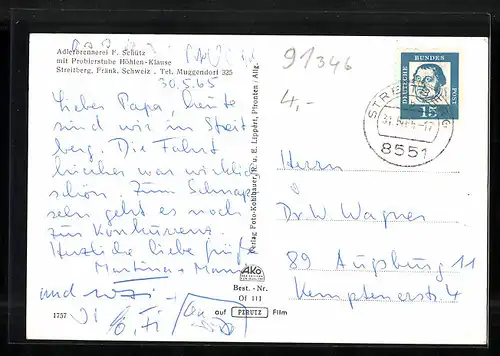 Adlerbrennerei F. Schütz
mit Probierstube Höhlen-Klause
Streitberg, Fränk. Schweiz . Tel. Muggendorf 325
30.5.65
Lieber Papa, heute
sind wir in Streit-
berg. Die Fahrt
hierher war wirklich
schön. Zum Schnap-
seln geht es noch
zur Konkurrenz.
Herzliche liebe Grüße
Martina + Mama
und
91346
4,-
DEUTSCHE BUNDESPOST
15
STREITBERG
8551
Herrn
Dr. W. Wagner
89 Augsburg 11
Kemptenerstr. 4
Verlag Foto-Kohlbauer, R. u. E. Lippert, Pfronten/Allg.
AKO
Best.-Nr.
Of 111
auf PERUTZ Film
1757